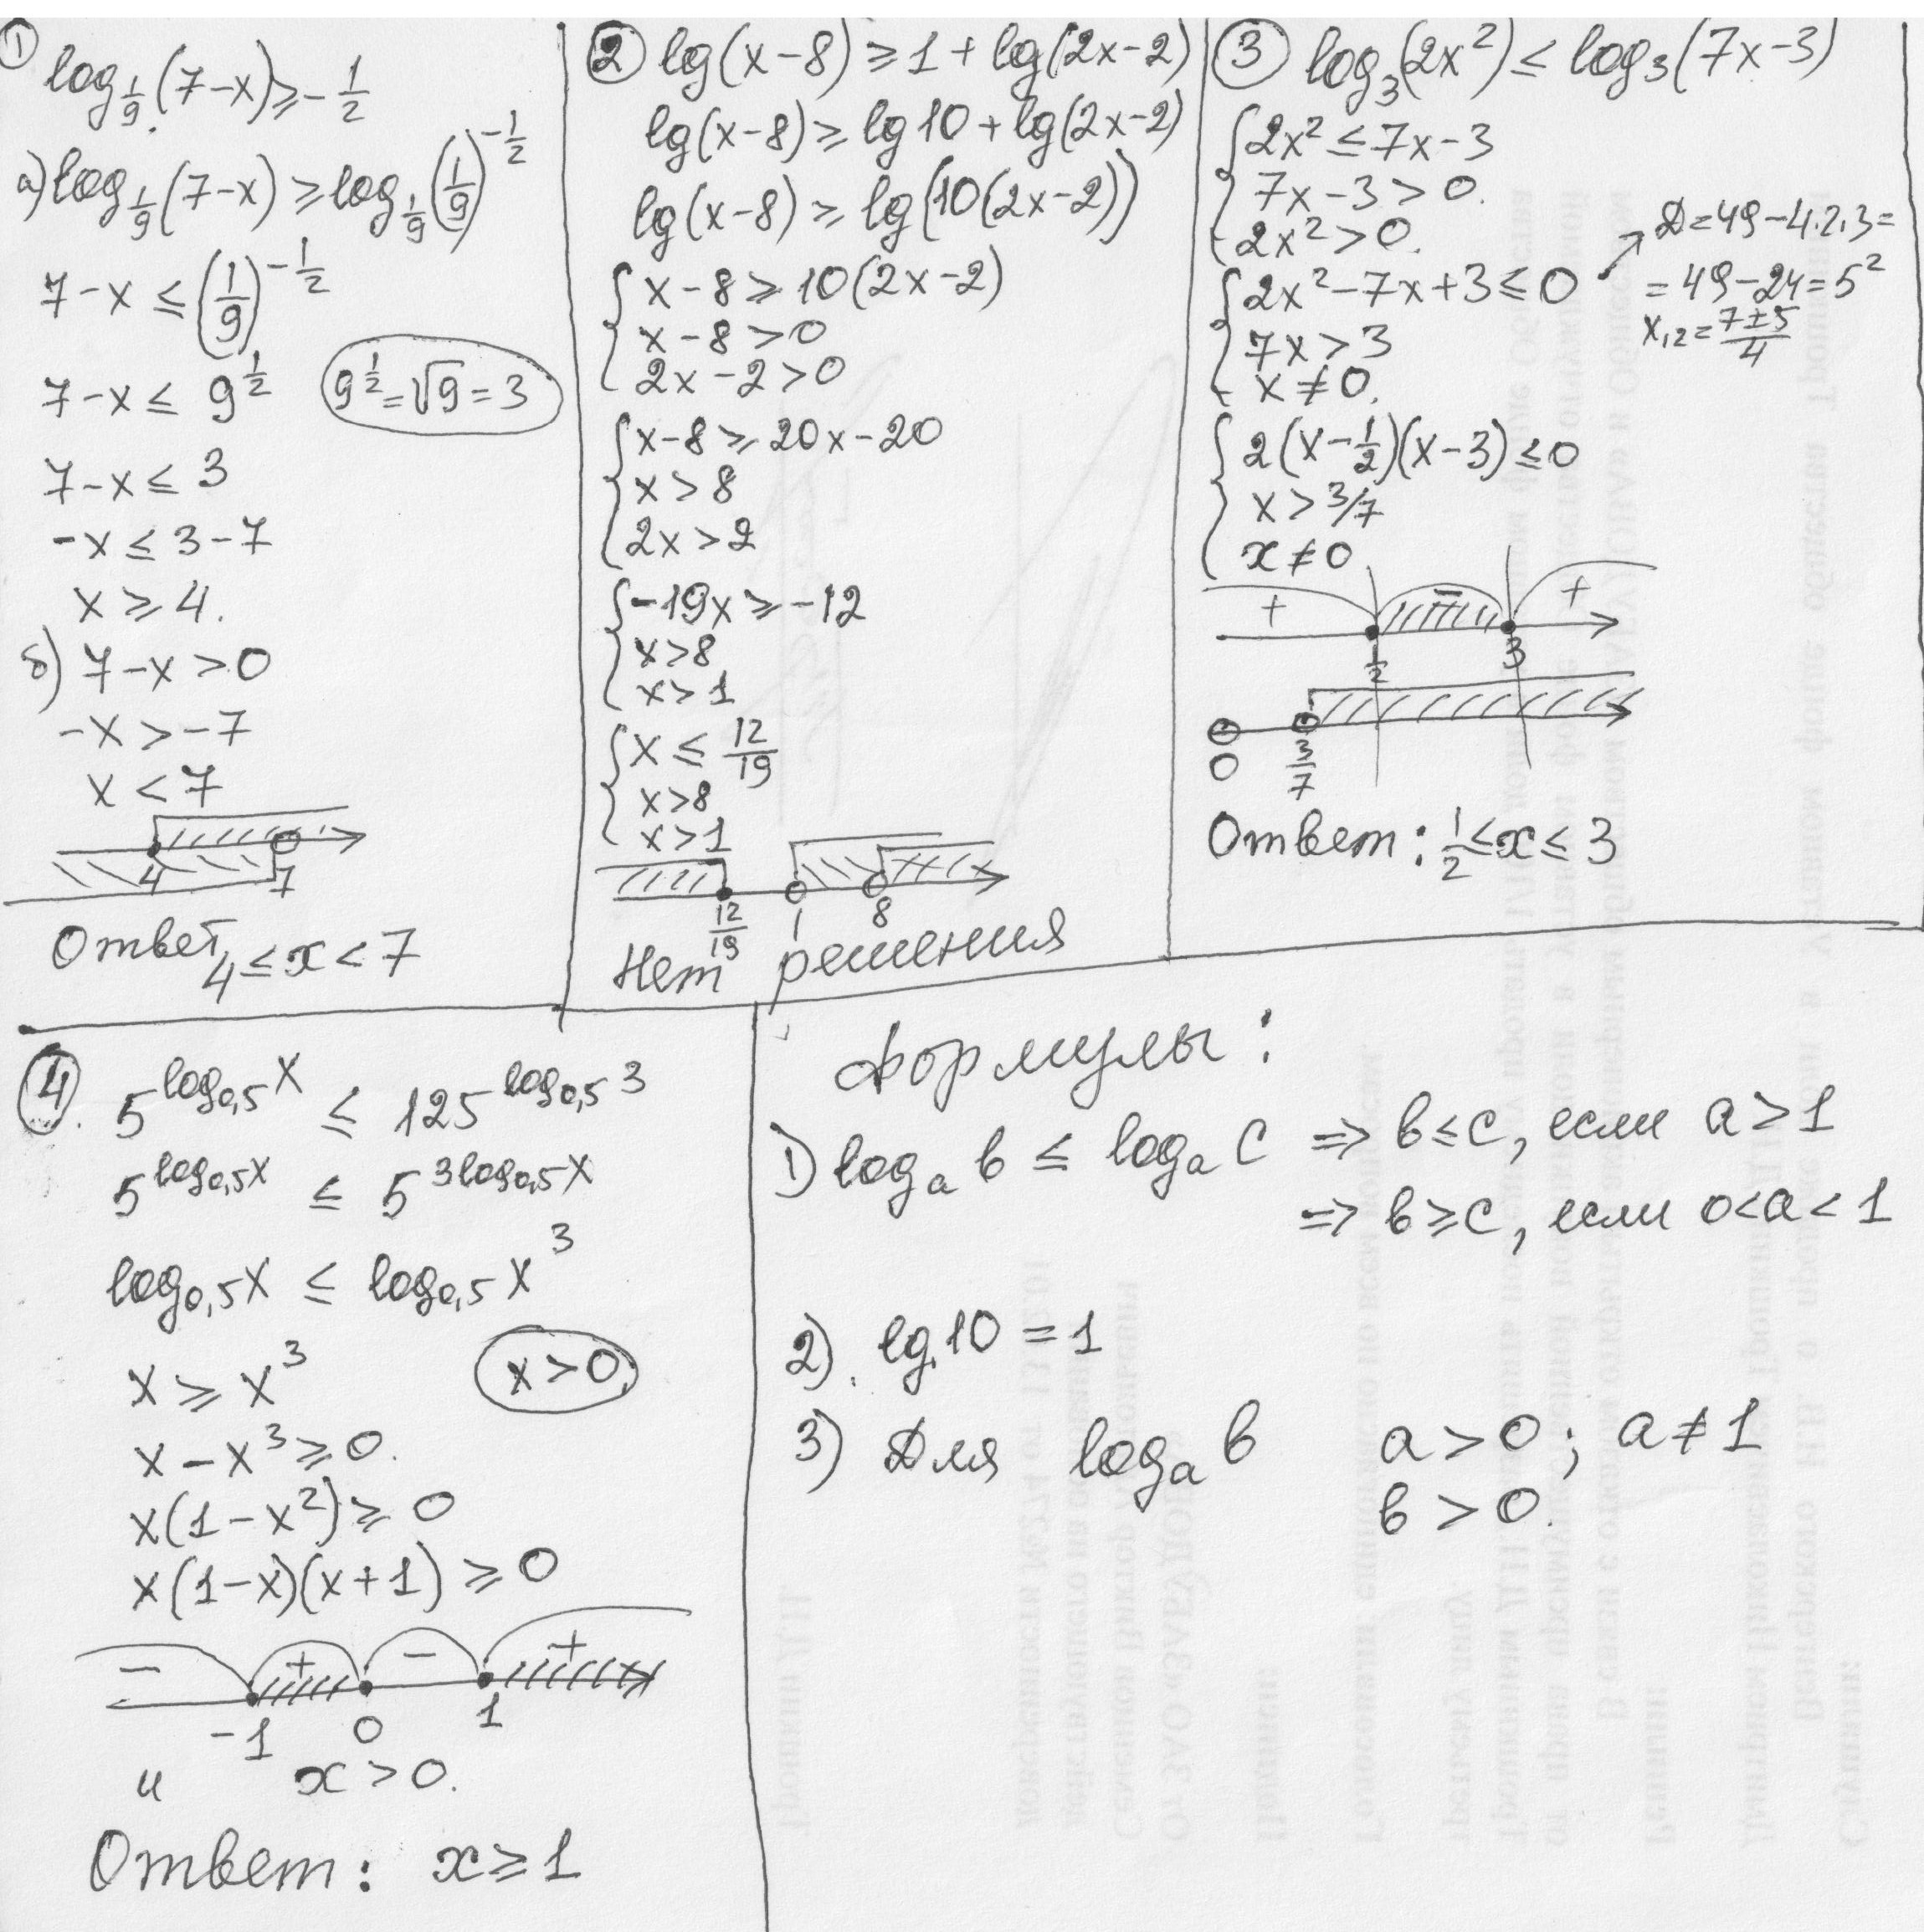 ① log_{1/9}(7-x) ≥ -1/2
а) log_{1/9}(7-x) ≥ log_{1/9}(1/9)^{-1/2}
7-x ≤ (1/9)^{-1/2}
7-x ≤ 9^{1/2}  9^{1/2} = √9 = 3
7-x ≤ 3
-x ≤ 3-7
x ≥ 4.
б) 7-x > 0
-x > -7
x < 7
4 7
Ответ 4 ≤ x < 7
② lg(x-8) ≥ 1 + lg(2x-2)
lg(x-8) ≥ lg10 + lg(2x-2)
lg(x-8) ≥ lg(10(2x-2))
{ x-8 ≥ 10(2x-2)
x-8 > 0
2x-2 > 0
{ x-8 ≥ 20x-20
x > 8
2x > 2
{ -19x ≥ -12
x > 8
x > 1
{ x ≤ 12/19
x > 8
x > 1
12/19 1 8
Нет решения
③ log_3(2x²) ≤ log_3(7x-3)
{ 2x² ≤ 7x-3
7x-3 > 0.
2x² > 0.
{ 2x²-7x+3 ≤ 0
7x > 3
x ≠ 0.
D = 49-4·2·3 =
= 49-24 = 5²
x_{1,2} = (7±5)/4
{ 2(x-1/2)(x-3) ≤ 0
x > 3/7
x ≠ 0
+ - +
1/2 3
0 3/7
Ответ: 1/2 ≤ x ≤ 3
④. 5^{log_{0,5}x} ≤ 125^{log_{0,5}3}
5^{log_{0,5}x} ≤ 5^{3log_{0,5}x}
log_{0,5}x ≤ log_{0,5}x³
x ≥ x³  x > 0
x - x³ ≥ 0.
x(1-x²) ≥ 0
x(1-x)(x+1) ≥ 0
- + - +
-1 0 1
и x > 0.
Ответ: x ≥ 1
Формулы:
1) log_a b ≤ log_a c ⇒ b ≤ c, если a > 1
⇒ b ≥ c, если 0 < a < 1
2). lg 10 = 1
3) Для log_a b a > 0; a ≠ 1
b > 0.